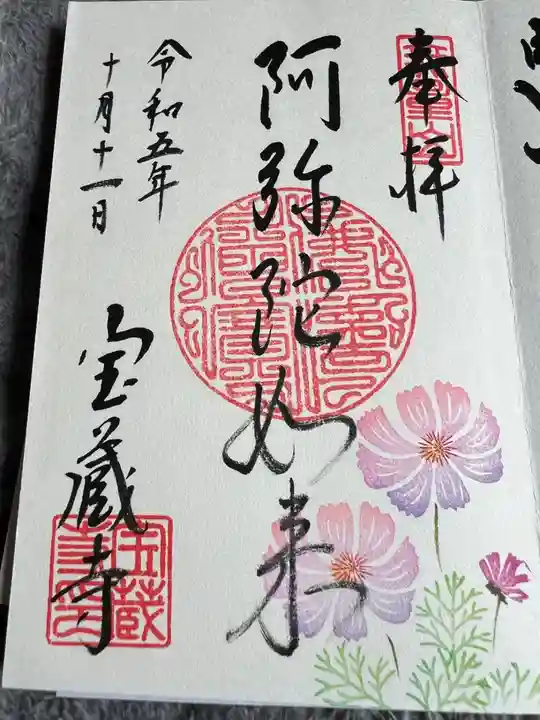 奉拝
阿弥陀如来
令和五年
十月十一日
宝蔵寺